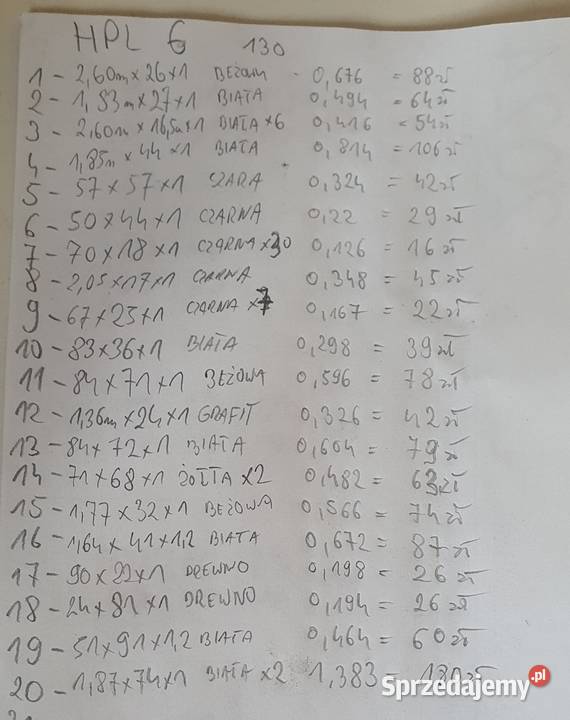 HPL 6 130
1 - 2,60m x 26 x 1 BEŻOWA - 0,676 = 88zł
2 - 1,83m x 27 x 1 BIAŁA 0,494 = 64zł
3 - 2,60m x 16,5 x 1 BIAŁA x 6 0,416 = 54zł
4 - 1,85m x 44 x 1 BIAŁA 0,814 = 106zł
5 - 57 x 57 x 1 SZARA 0,324 = 42zł
6 - 50 x 44 x 1 CZARNA 0,22 = 29zł
7 - 70 x 18 x 1 CZARNA x 30 0,126 = 16zł
8 - 2,05 x 17 x 1 CZARNA 0,348 = 45zł
9 - 67 x 25 x 1 CZARNA x 7 0,167 = 22zł
10 - 83 x 36 x 1 BIAŁA 0,298 = 39zł
11 - 84 x 71 x 1 BEŻOWA 0,596 = 78zł
12 - 1,36m x 24 x 1 GRAFIT 0,326 = 42zł
13 - 84 x 72 x 1 BIAŁA 0,604 = 79zł
14 - 71 x 68 x 1 ŻÓŁTA x 2 0,482 = 63zł
15 - 1,77 x 32 x 1 BEŻOWA 0,566 = 74zł
16 - 1,64 x 41 x 1,2 BIAŁA 0,672 = 87zł
17 - 90 x 22 x 1 DREWNO 0,198 = 26zł
18 - 24 x 81 x 1 DREWNO 0,194 = 26zł
19 - 51 x 91 x 1,2 BIAŁA 0,464 = 60zł
20 - 1,87 x 74 x 1 BIAŁA x 2 1,383 = 180zł
Sprzedajemy.pl